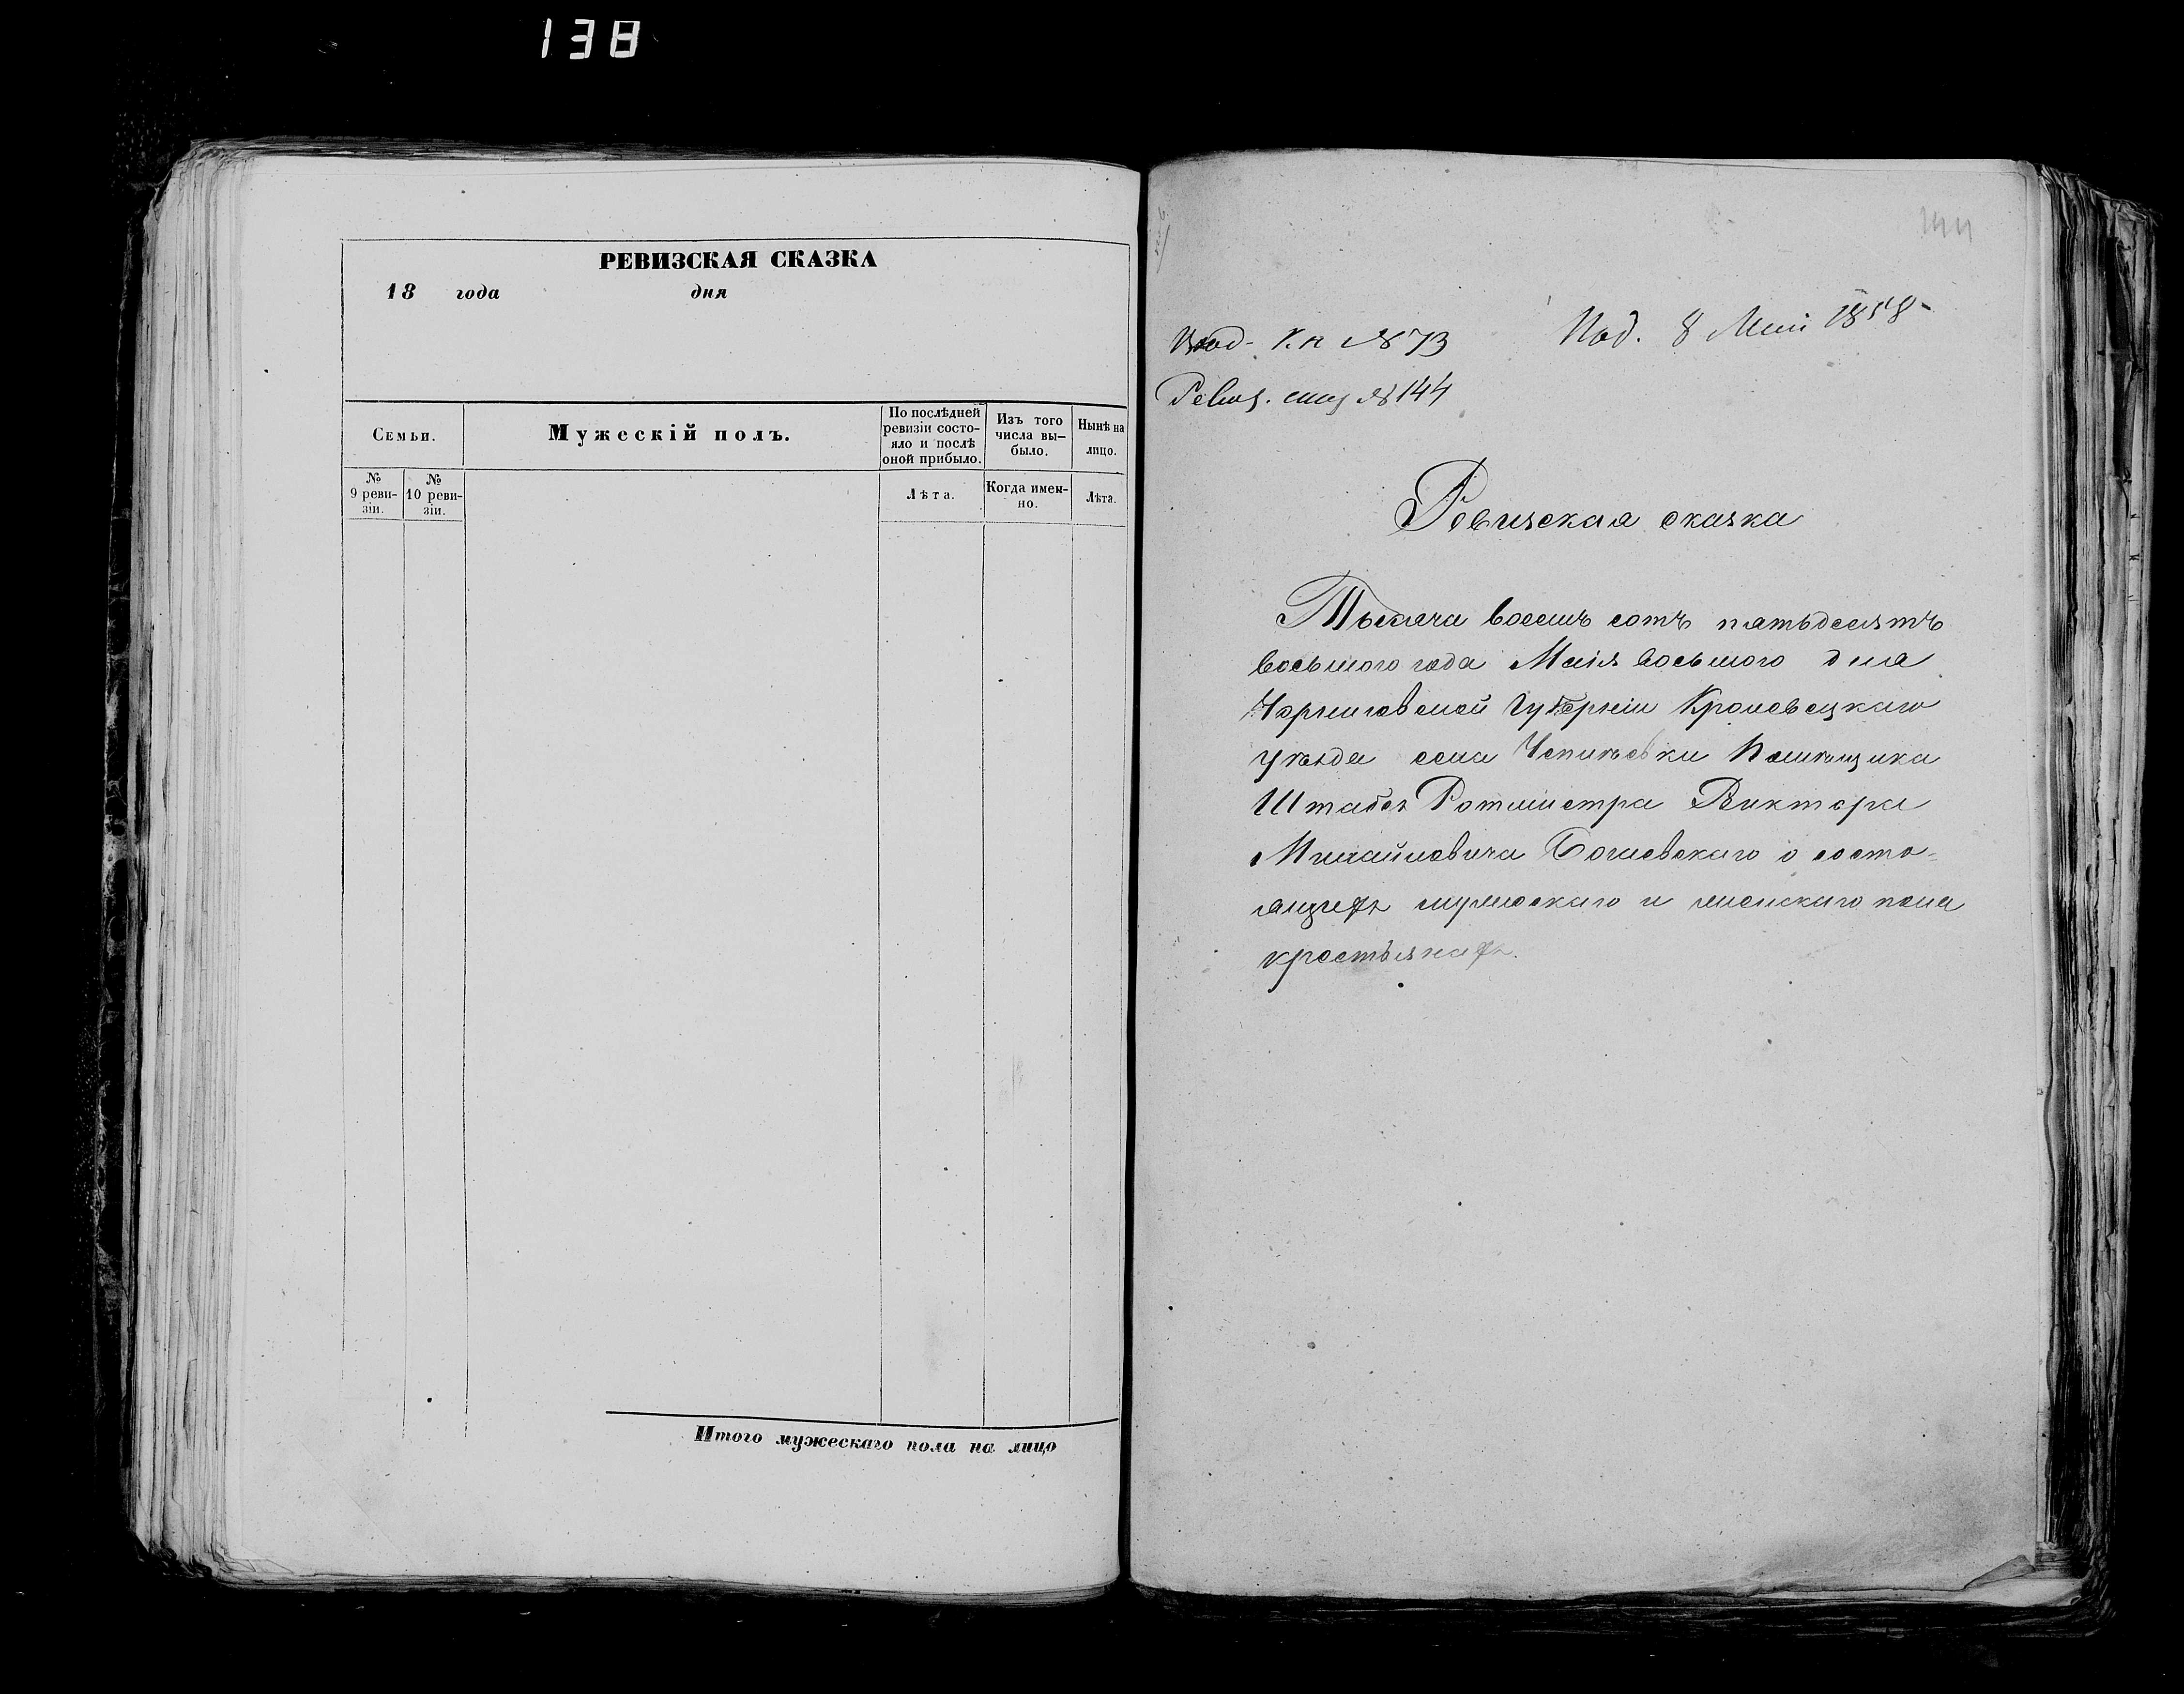 138
РЕВИЗСКАЯ СКАЗКА
18 года дня
Семьи.
Мужескій полъ.
По послѣдней
ревизіи состо-
яло и послѣ
оной прибыло.
Изъ того
числа вы-
было.
Нынѣ на
лицо.
№
9 реви-
зіи.
№
10 реви-
зіи.
Лѣта.
Когда имен-
но.
Лѣта.
Итого мужескаго пола на лицо
144
К. к №73
Под. 8 Мая 1858
Ревиз. №144
Ревизская сказка
Тысяча восемь сотъ пятьдесятъ
восьмого года Маія восьмого дня
Черниговской Губерніи Кролевецкаго
уѣзда села Чепиѣевки Помѣщика
Штабсъ Ротмистра Виктора
Михайловича о состо-
ящихъ мужескаго и женскаго пола
крестьянахъ.